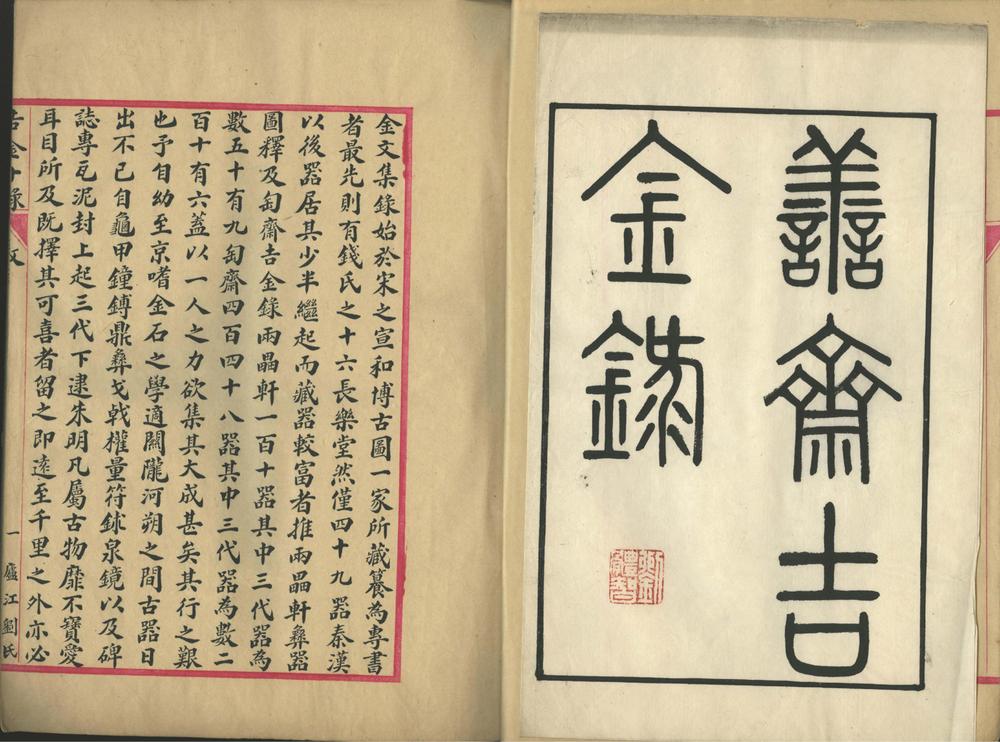 善齋吉
金錄
金文集錄始於宋之宣和博古圖一家所藏纂為專書
者最先則有錢氏之十六長樂堂然僅四十九器秦漢
以後器居其少半繼起而藏器較富者推兩畾軒彝器
圖釋及匋齋吉金錄兩畾軒一百十器其中三代器為
數五十有九匋齋四百四十八器其中三代器為數二
百十有六蓋以一人之力欲集其大成甚矣其行之艱
也予自幼至京嗜金石之學適關隴河朔之間古器日
出不已自龜甲鐘鎛鼎彝戈戟權量符鉥泉鏡以及碑
誌專瓦泥封上起三代下逮朱明凡屬古物靡不寶愛
耳目所及既擇其可喜者留之即遠至千里之外亦必
一 廬江劉氏